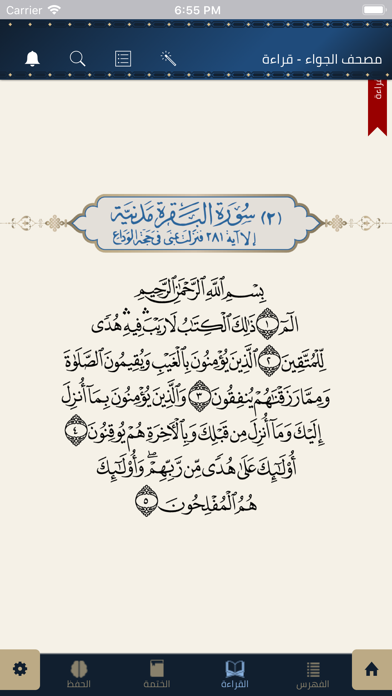 Carrier 6:55 PM
مصحف الجواء - قراءة
قراءة
(٢) سُورَةُ البَقَرَةِ مَدَنِيَّة
إلا آية ٢٨١ فنزلت بمنى في حجة الوداع
بِسْمِ ٱللَّهِ ٱلرَّحْمَٰنِ ٱلرَّحِيمِ
الٓمٓ ١ ذَٰلِكَ ٱلْكِتَٰبُ لَا رَيْبَ ۛ فِيهِ ۛ هُدًى
لِّلْمُتَّقِينَ ٢ ٱلَّذِينَ يُؤْمِنُونَ بِٱلْغَيْبِ وَيُقِيمُونَ ٱلصَّلَوٰةَ
وَمِمَّا رَزَقْنَٰهُمْ يُنفِقُونَ ٣ وَٱلَّذِينَ يُؤْمِنُونَ بِمَآ أُنزِلَ
إِلَيْكَ وَمَآ أُنزِلَ مِن قَبْلِكَ وَبِٱلْءَاخِرَةِ هُمْ يُوقِنُونَ ٤
أُو۟لَٰٓئِكَ عَلَىٰ هُدًى مِّن رَّبِّهِمْ ۖ وَأُو۟لَٰٓئِكَ
هُمُ ٱلْمُفْلِحُونَ ٥
الفهرس القراءة الختمة الحفظ